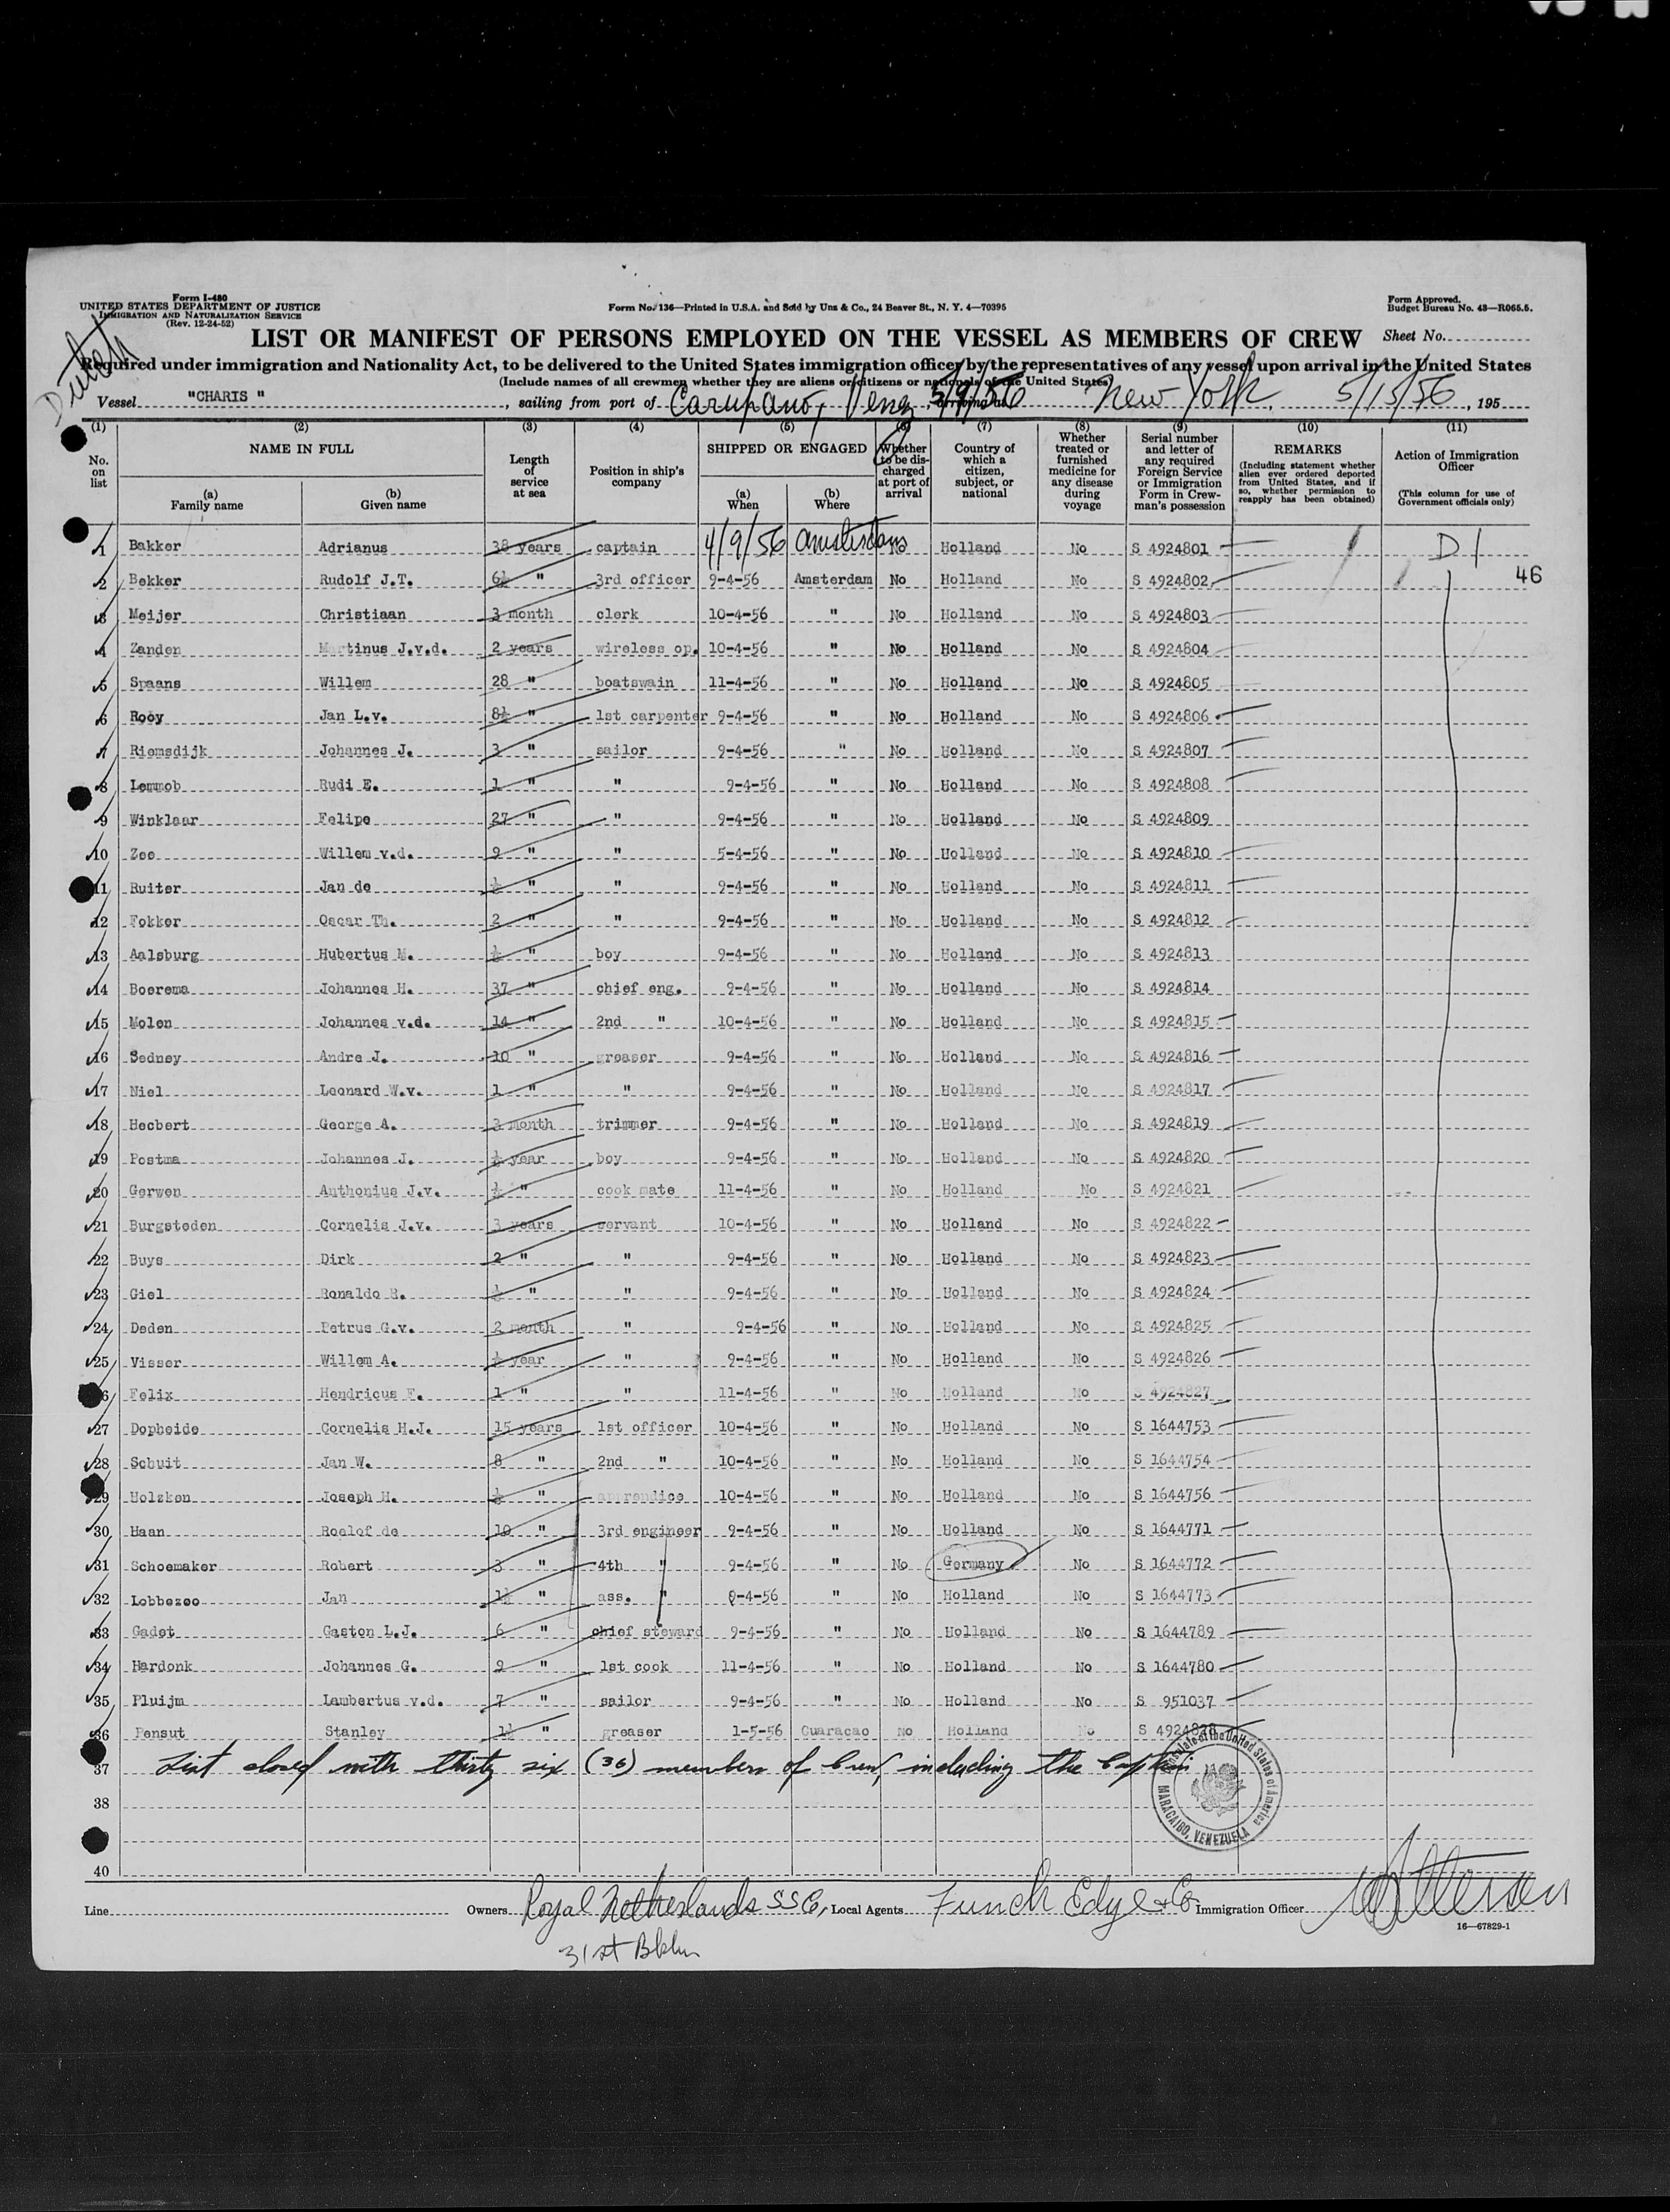 Form I-480
UNITED STATES DEPARTMENT OF JUSTICE
IMMIGRATION AND NATURALIZATION SERVICE
(Rev. 12-24-52)
Form No. 136—Printed in U.S.A. and Sold by Unz & Co., 24 Beaver St., N. Y. 4—70395
Form Approved.
Budget Bureau No. 43—R065.5.
Dutch
LIST OR MANIFEST OF PERSONS EMPLOYED ON THE VESSEL AS MEMBERS OF CREW Sheet No.
Required under immigration and Nationality Act, to be delivered to the United States immigration officer by the representatives of any vessel upon arrival in the United States
(Include names of all crewmen whether they are aliens or citizens or nationals of the United States)
Vessel "CHARIS" , sailing from port of Carupano, Venez 5/9/56 New York, 5/15/56, 195
(1) (2) (3) (4) (5) (6) (7) (8) (9) (10) (11)
No. on list
NAME IN FULL
(a) Family name
(b) Given name
Length of service at sea
Position in ship's company
SHIPPED OR ENGAGED
(a) When
(b) Where
Whether to be discharged at port of arrival
Country of which a citizen, subject, or national
Whether treated or furnished medicine for any disease during voyage
Serial number and letter of any required Foreign Service or Immigration Form in Crewman's possession
REMARKS
(Including statement whether alien ever ordered deported from United States, and if so, whether permission to reapply has been obtained)
Action of Immigration Officer
(This column for use of Government officials only)
1 Bakker Adrianus 38 years captain 4/9/56 Amsterdam No Holland No S 4924801 D1
2 Bekker Rudolf J.T. 6½ " 3rd officer 9-4-56 Amsterdam No Holland No S 4924802 46
3 Meijer Christiaan 3 month clerk 10-4-56 " No Holland No S 4924803
4 Zanden Martinus J.v.d. 2 years wireless op. 10-4-56 " No Holland No S 4924804
5 Spaans Willem 28 " boatswain 11-4-56 " No Holland No S 4924805
6 Rooy Jan L.v. 8½ " 1st carpenter 9-4-56 " No Holland No S 4924806
7 Riemsdijk Johannes J. 3 " sailor 9-4-56 " No Holland No S 4924807
8 Lemmob Rudi E. 1 " " 9-4-56 " No Holland No S 4924808
9 Winklaar Felipe 27 " " 9-4-56 " No Holland No S 4924809
10 Zee Willem v.d. 9 " " 5-4-56 " No Holland No S 4924810
11 Ruiter Jan de ½ " " 9-4-56 " No Holland No S 4924811
12 Fokker Oscar Th. 2 " " 9-4-56 " No Holland No S 4924812
13 Aalsburg Hubertus M. ½ " boy 9-4-56 " No Holland No S 4924813
14 Boerema Johannes H. 37 " chief eng. 9-4-56 " No Holland No S 4924814
15 Molen Johannes v.d. 14 " 2nd " 10-4-56 " No Holland No S 4924815
16 Sedney Andre J. 10 " greaser 9-4-56 " No Holland No S 4924816
17 Niel Leonard W.v. 1 " " 9-4-56 " No Holland No S 4924817
18 Hecbert George A. 3 month trimmer 9-4-56 " No Holland No S 4924819
19 Postma Johannes J. ½ year boy 9-4-56 " No Holland No S 4924820
20 Gerwen Anthonius J.v. ½ " cook mate 11-4-56 " No Holland No S 4924821
21 Burgsteden Cornelis J.v. 3 years servant 10-4-56 " No Holland No S 4924822
22 Buys Dirk 2 " " 9-4-56 " No Holland No S 4924823
23 Giel Ronaldo R. ½ " " 9-4-56 " No Holland No S 4924824
24 Deden Petrus G.v. 2 month " 9-4-56 " No Holland No S 4924825
25 Visser Willem A. ½ year " 9-4-56 " No Holland No S 4924826
6 Felix Hendricus F. 1 " " 11-4-56 " No Holland No S 4924827
27 Dopheide Cornelis H.J. 15 years 1st officer 10-4-56 " No Holland No S 1644753
28 Schuit Jan W. 8 " 2nd " 10-4-56 " No Holland No S 1644754
29 Holzken Joseph H. ½ " apprendice 10-4-56 " No Holland No S 1644756
30 Haan Roelof de 10 " 3rd engineer 9-4-56 " No Holland No S 1644771
31 Schoemaker Robert 3 " 4th " 9-4-56 " No Germany No S 1644772
32 Lobbezoo Jan 1½ " ass. " 9-4-56 " No Holland No S 1644773
33 Gadet Gaston L.J. 6 " chief steward 9-4-56 " No Holland No S 1644789
34 Hardonk Johannes G. 9 " 1st cook 11-4-56 " No Holland No S 1644780
35 Pluijm Lambertus v.d. 7 " sailor 9-4-56 " No Holland No S 951037
36 Pensut Stanley 1½ " greaser 1-5-56 Curacao No Holland No S 4924828
37 List closed with thirty six (36) members of Crew, including the Captain
38
40
Consulate of the United States of America
MARACAIBO, VENEZUELA
Line Owners Royal Netherlands SS Co, Local Agents Funch Edye & Co Immigration Officer
31 st Bkln
16—67829-1